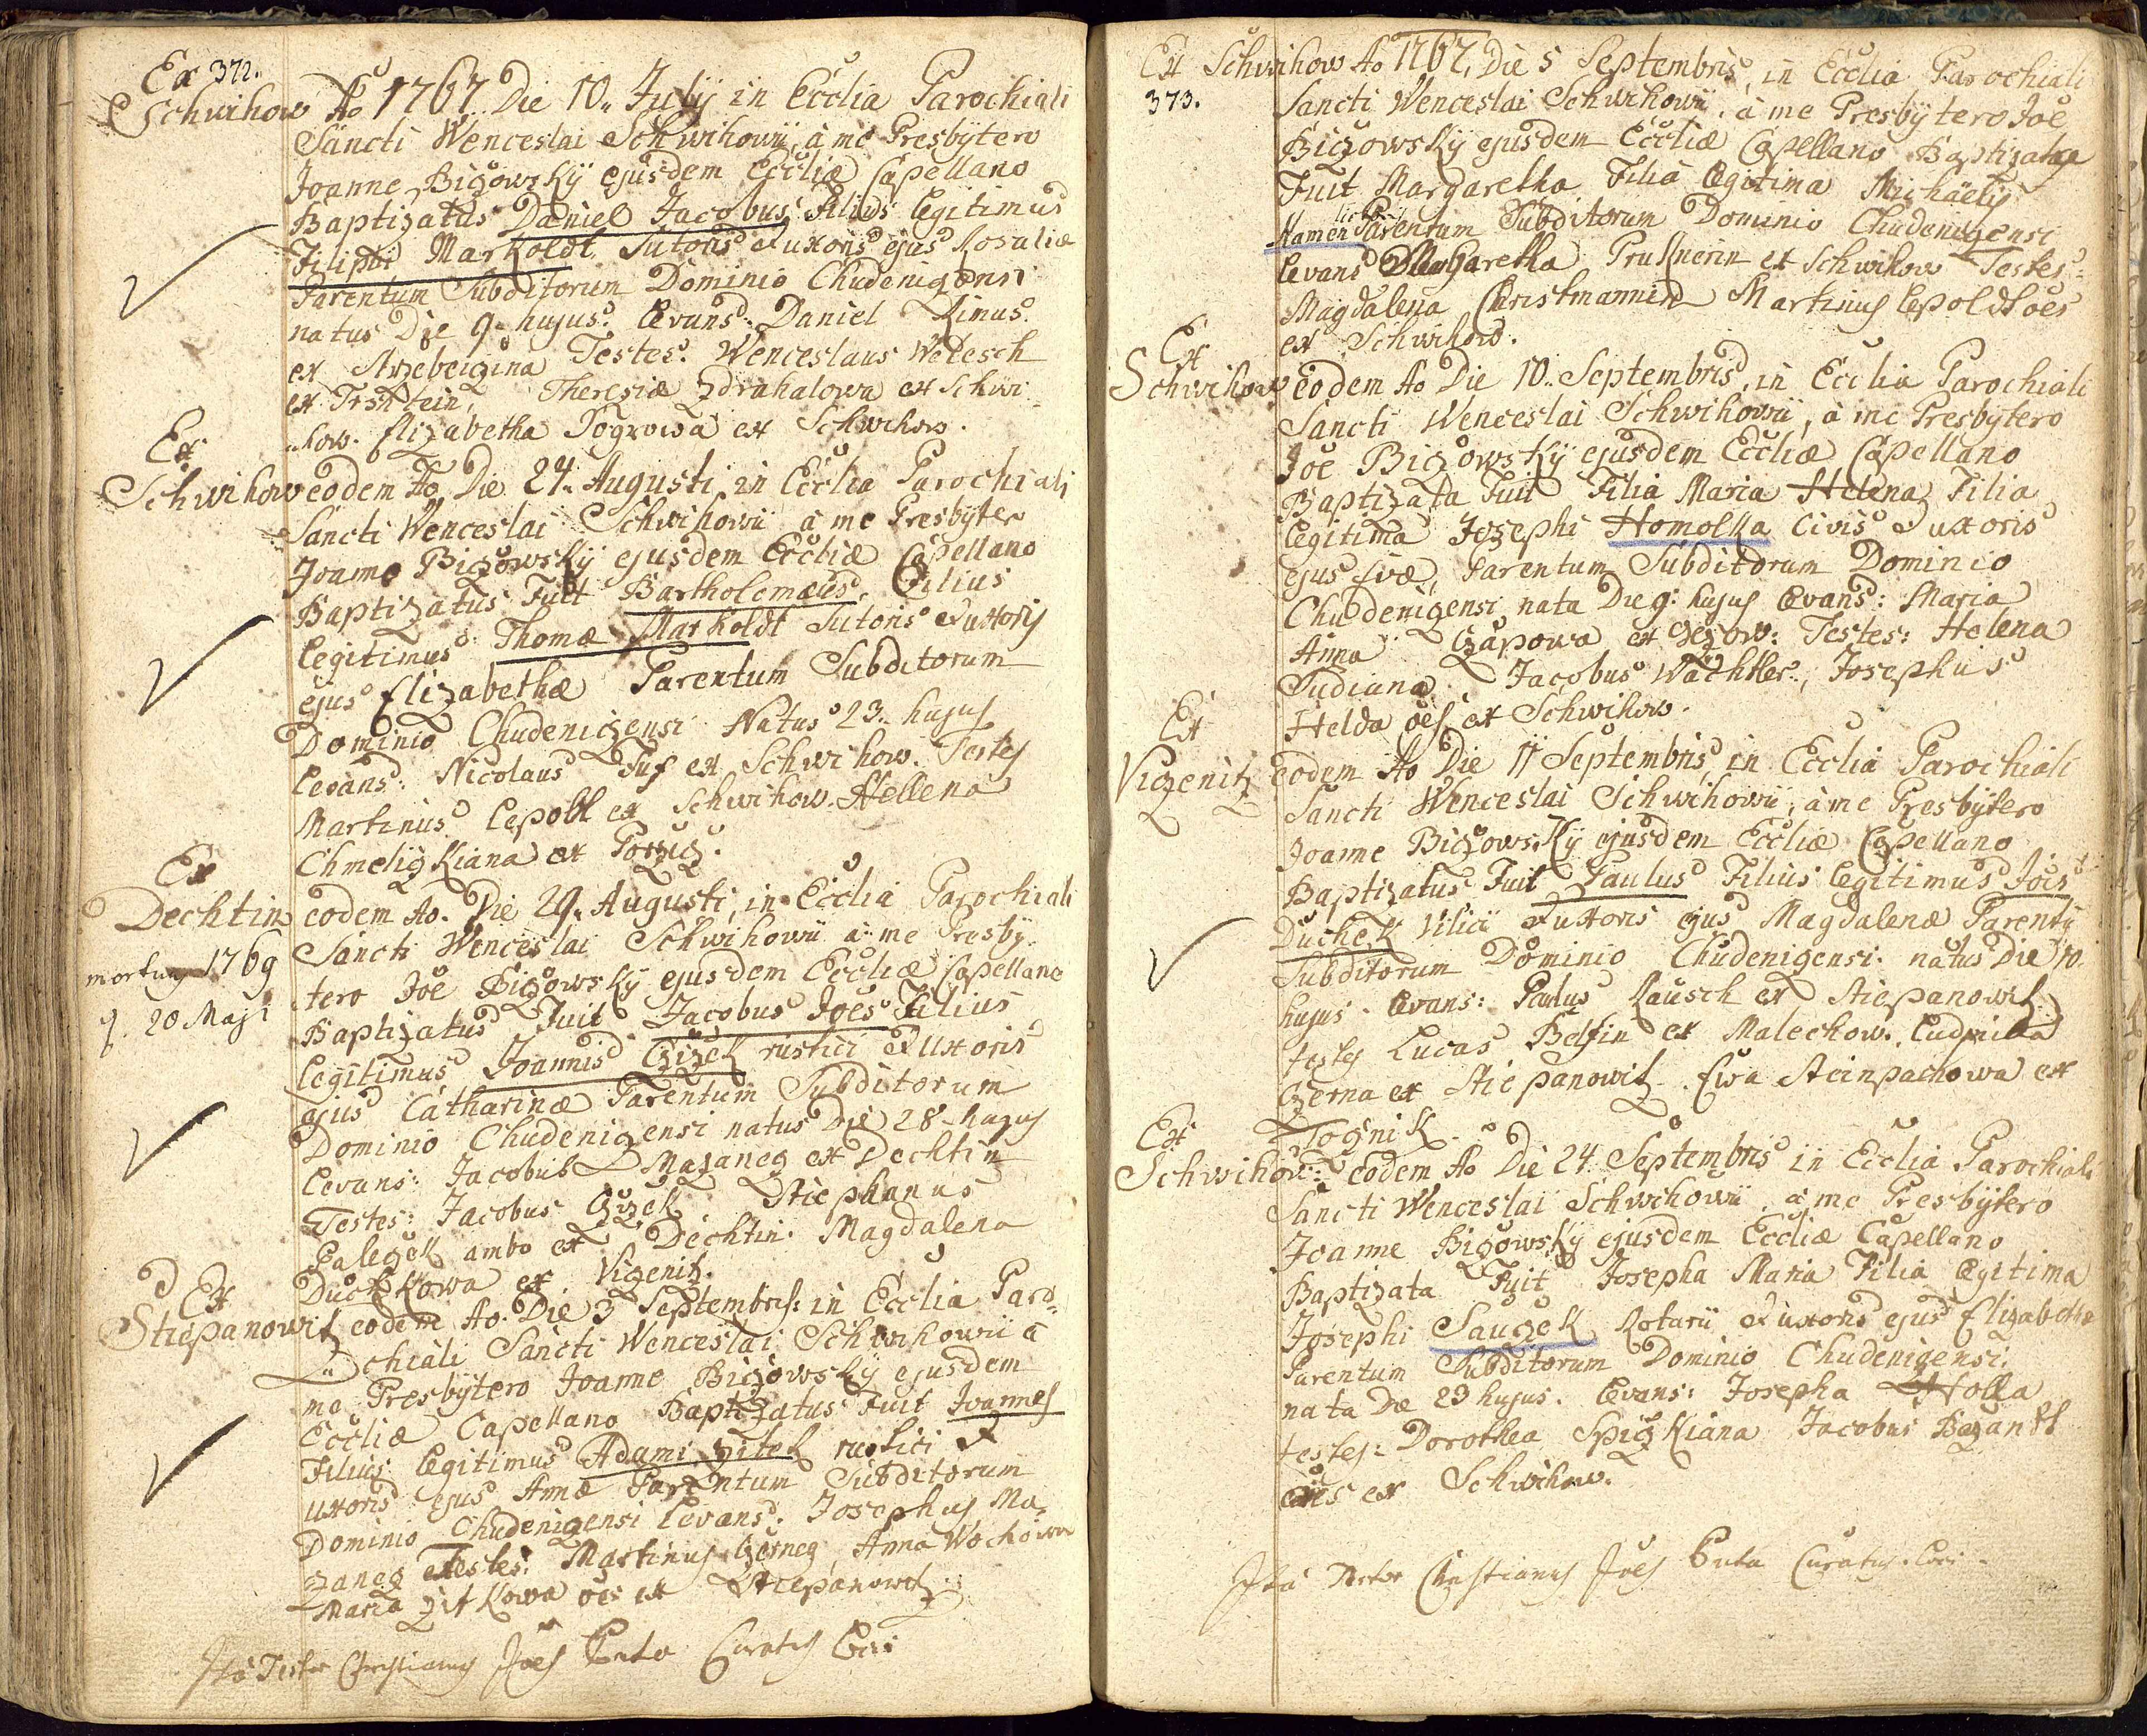 Ex 372.
Schwihow Ao 1767 Die 10. Julÿ in Ecclia Parochiali
Sancti Wenceslai Schwihowii, à me Presbÿtero
Joanne Biczowskÿ ejusdem Eccliæ Capellano
Baptizatus Daniel Jacobus Filius legitimus
Filippi Markoldt Sutoris & uxoris ejus Rosaliæ
Parentum Subditorum Dominio Chudeniczensi
natus Die 9. hujus. Levans: Daniel Zimus
ex Testes: Wenceslaus Welesch
ex Theresiæ Zdrahalowa ex Schwi=
how. Elizabetha ex Schwihow.
Ex
Schwihow eodem Ao Die 24. Augusti, in Ecclia Parochiali
Sancti Wenceslai Schwihowii à me Presbÿtero
Joanne Biczowskÿ ejusdem Eccliæ Capellano
Baptizatus Fuit Bartholomæus, Filius
legitimus Thomæ Markoldt Sutoris & uxoris
ejus Elizabethæ Parentum Subditorum
Dominio Chudeniczensi Natus 23. hujus
Levans: Nicolaus Fuß ex Schwihow. Testes
Martinus Lepold ex Schwihow. Hellena
Chmeliczkiana ex
Ex
Dechtin eodem Ao. Die 29. Augusti, in Ecclia Parochiali
Sancti Wenceslai Schwihowii à me Presbÿ
mortuus 1769
tero Joe Biczowskÿ ejusdem Eccliæ Capellano
20 Maji
Baptizatus Fuit Jacobus Joes Filius
legitimus Joannis Czizek rustici & uxoris
ejus Catharinæ Parentum Subditorum
Dominio Chudeniczensi natus Die 28. hujus
Levans: Jacobus Mazanecz ex Dechtin
Testes: Jacobus Czizek Stiephanus
Paleczek ambo ex Dechtin. Magdalena
Duchkowa ex Viczenitz.
Ex
Stiepanowitz eodem Ao. Die 3 Septembris: in Ecclia Paro=
chiali Sancti Wenceslai Schwihowii à
me Presbÿtero Joanne Biczowskÿ ejusdem
Eccliæ Capellano Baptizatus Fuit Joannes
Filius legitimus Adami Zitek rustici &
uxoris ejus Annæ Parentum Subditorum
Dominio Chudeniczensi Levans: Josephus Ma=
zanecz Testes: Martinus Czernecz, Anna Wochowa
Maria Zitkowa oes ex Stiepanowitz
Ita Testor Christianus Joes Curatus Loci
Ex Schwihow Ao 1767, Die 5 Septembris, in Ecclia Parochiali
373.
Sancti Wenceslai Schwihowii, à me Presbÿtero Joe
Biczowskÿ ejusdem Eccliæ Capellano Baptizata
Fuit Margaretha Filia legitima Michaelis
Parentum Subditorum Dominio Chudeniczensi
Levans Margaretha Pruknerin ex Schwihow Testes:
Magdalena Christmannin Martinus Lepoldt oes
ex Schwihow.
Ex
Schwihow eodem Ao Die 10. Septembris, in Ecclia Parochiali
Sancti Wenceslai Schwihowii, à me Presbÿtero
Joe Biczowskÿ ejusdem Eccliæ Capellano
Baptizata Fuit Filia Maria Helena Filia
legitima Josephi Homolka Civis & uxoris
ejus Evæ, Parentum Subditorum Dominio
Chudeniczensi nata Die 9. hujus Levans: Maria
Anna Czapowa ex Testes: Helena
Sudiana Jacobus Wachtler, Josephus
Helda oes ex Schwihow.
Ex
Viczenitz eodem Ao Die 11 Septembris, in Ecclia Parochiali
Sancti Wenceslai Schwihowii, à me Presbÿtero
Joanne Biczowskÿ ejusdem Eccliæ Capellano
Baptizatus Fuit Paulus Filius legitimus Jois
Duchek Vilici & uxoris ejus Magdalenæ Parentu
Subditorum Dominio Chudeniczensi. natus Die 10.
hujus. Levans: Paulus Rausch ex Stiepanowitz
testes Lucas Belfin ex Malechow. Ludmilla
Czerna ex Stiepanowitz. Ewa Steinpachowa ex
Tocznik.
Ex
Schwihow: eodem Ao Die 24 Septembris in Ecclia Parochiali
Sancti Wenceslai Schwihowii à me Presbÿtero
Joanne Biczowskÿ ejusdem Eccliæ Capellano
Baptizata Fuit Josepha Maria Filia legitima
Josephi Sauczek Rotarii & uxoris ejus Elizabethæ
Parentum Subditorum Dominio Chudeniczensi.
nata Die 23 hujus. Levans: Josepha
testes: Dorothea Spiczkiana Jacobus
oes ex Schwihow.
Ita Testor Christianus Joes Curatus Loci